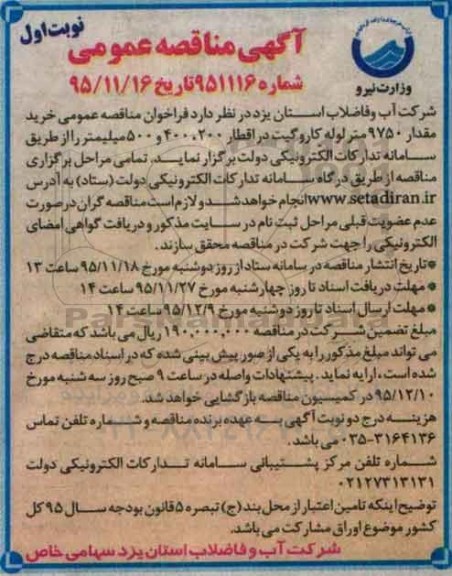 نوبت اول
آگهی مناقصه عمومی
شماره ۹۵۱۱۱۶ تاریخ ۹۵/۱۱/۱۶
وزارت نیرو
شرکت آب وفاضلاب استان یزد در نظر دارد فراخوان مناقصه عمومی خرید
مقدار ۹۷۵۰ متر لوله کاروگیت در اقطار ۲۰۰، ۴۰۰ و ۵۰۰ میلیمتر را از طریق
سامانه تدارکات الکترونیکی دولت برگزار نماید. تمامی مراحل برگزاری
مناقصه از طریق درگاه سامانه تدارکات الکترونیکی دولت (ستاد) به آدرس
www.setadiran.ir انجام خواهد شد و لازم است مناقصه گران در صورت
عدم عضویت قبلی مراحل ثبت نام در سایت مذکور و دریافت گواهی امضای
الکترونیکی را جهت شرکت در مناقصه محقق سازند.
*تاریخ انتشار مناقصه در سامانه ستاد از روز دوشنبه مورخ ۹۵/۱۱/۱۸ ساعت ۱۳
* مهلت دریافت اسناد تا روز چهارشنبه مورخ ۹۵/۱۱/۲۷ ساعت ۱۴
* مهلت ارسال اسناد تا روز دوشنبه مورخ ۹۵/۱۲/۹ ساعت ۱۴
مبلغ تضمین شرکت در مناقصه ۱۹۰,۰۰۰,۰۰۰ ریال می باشد که متقاضی
می تواند مبلغ مذکور را به یکی از صور پیش بینی شده که در اسناد مناقصه درج
شده است، ارایه نماید. پیشنهادات واصله در ساعت ۹ صبح روز سه شنبه مورخ
۹۵/۱۲/۱۰ در کمیسیون مناقصه بازگشایی خواهد شد.
هزینه درج دو نوبت آگهی به عهده برنده مناقصه و شماره تلفن تماس
۰۳۵-۳۱۶۴۱۳۶ می باشد.
شماره تلفن مرکز پشتیبانی سامانه تدارکات الکترونیکی دولت
۰۲۱۲۷۳۱۳۱۳۱
توضیح اینکه تامین اعتبار از محل بند (ج) تبصره ۵ قانون بودجه سال ۹۵ کل
کشور موضوع اوراق مشارکت می باشد.
شرکت آب و فاضلاب استان یزد سهامی خاص